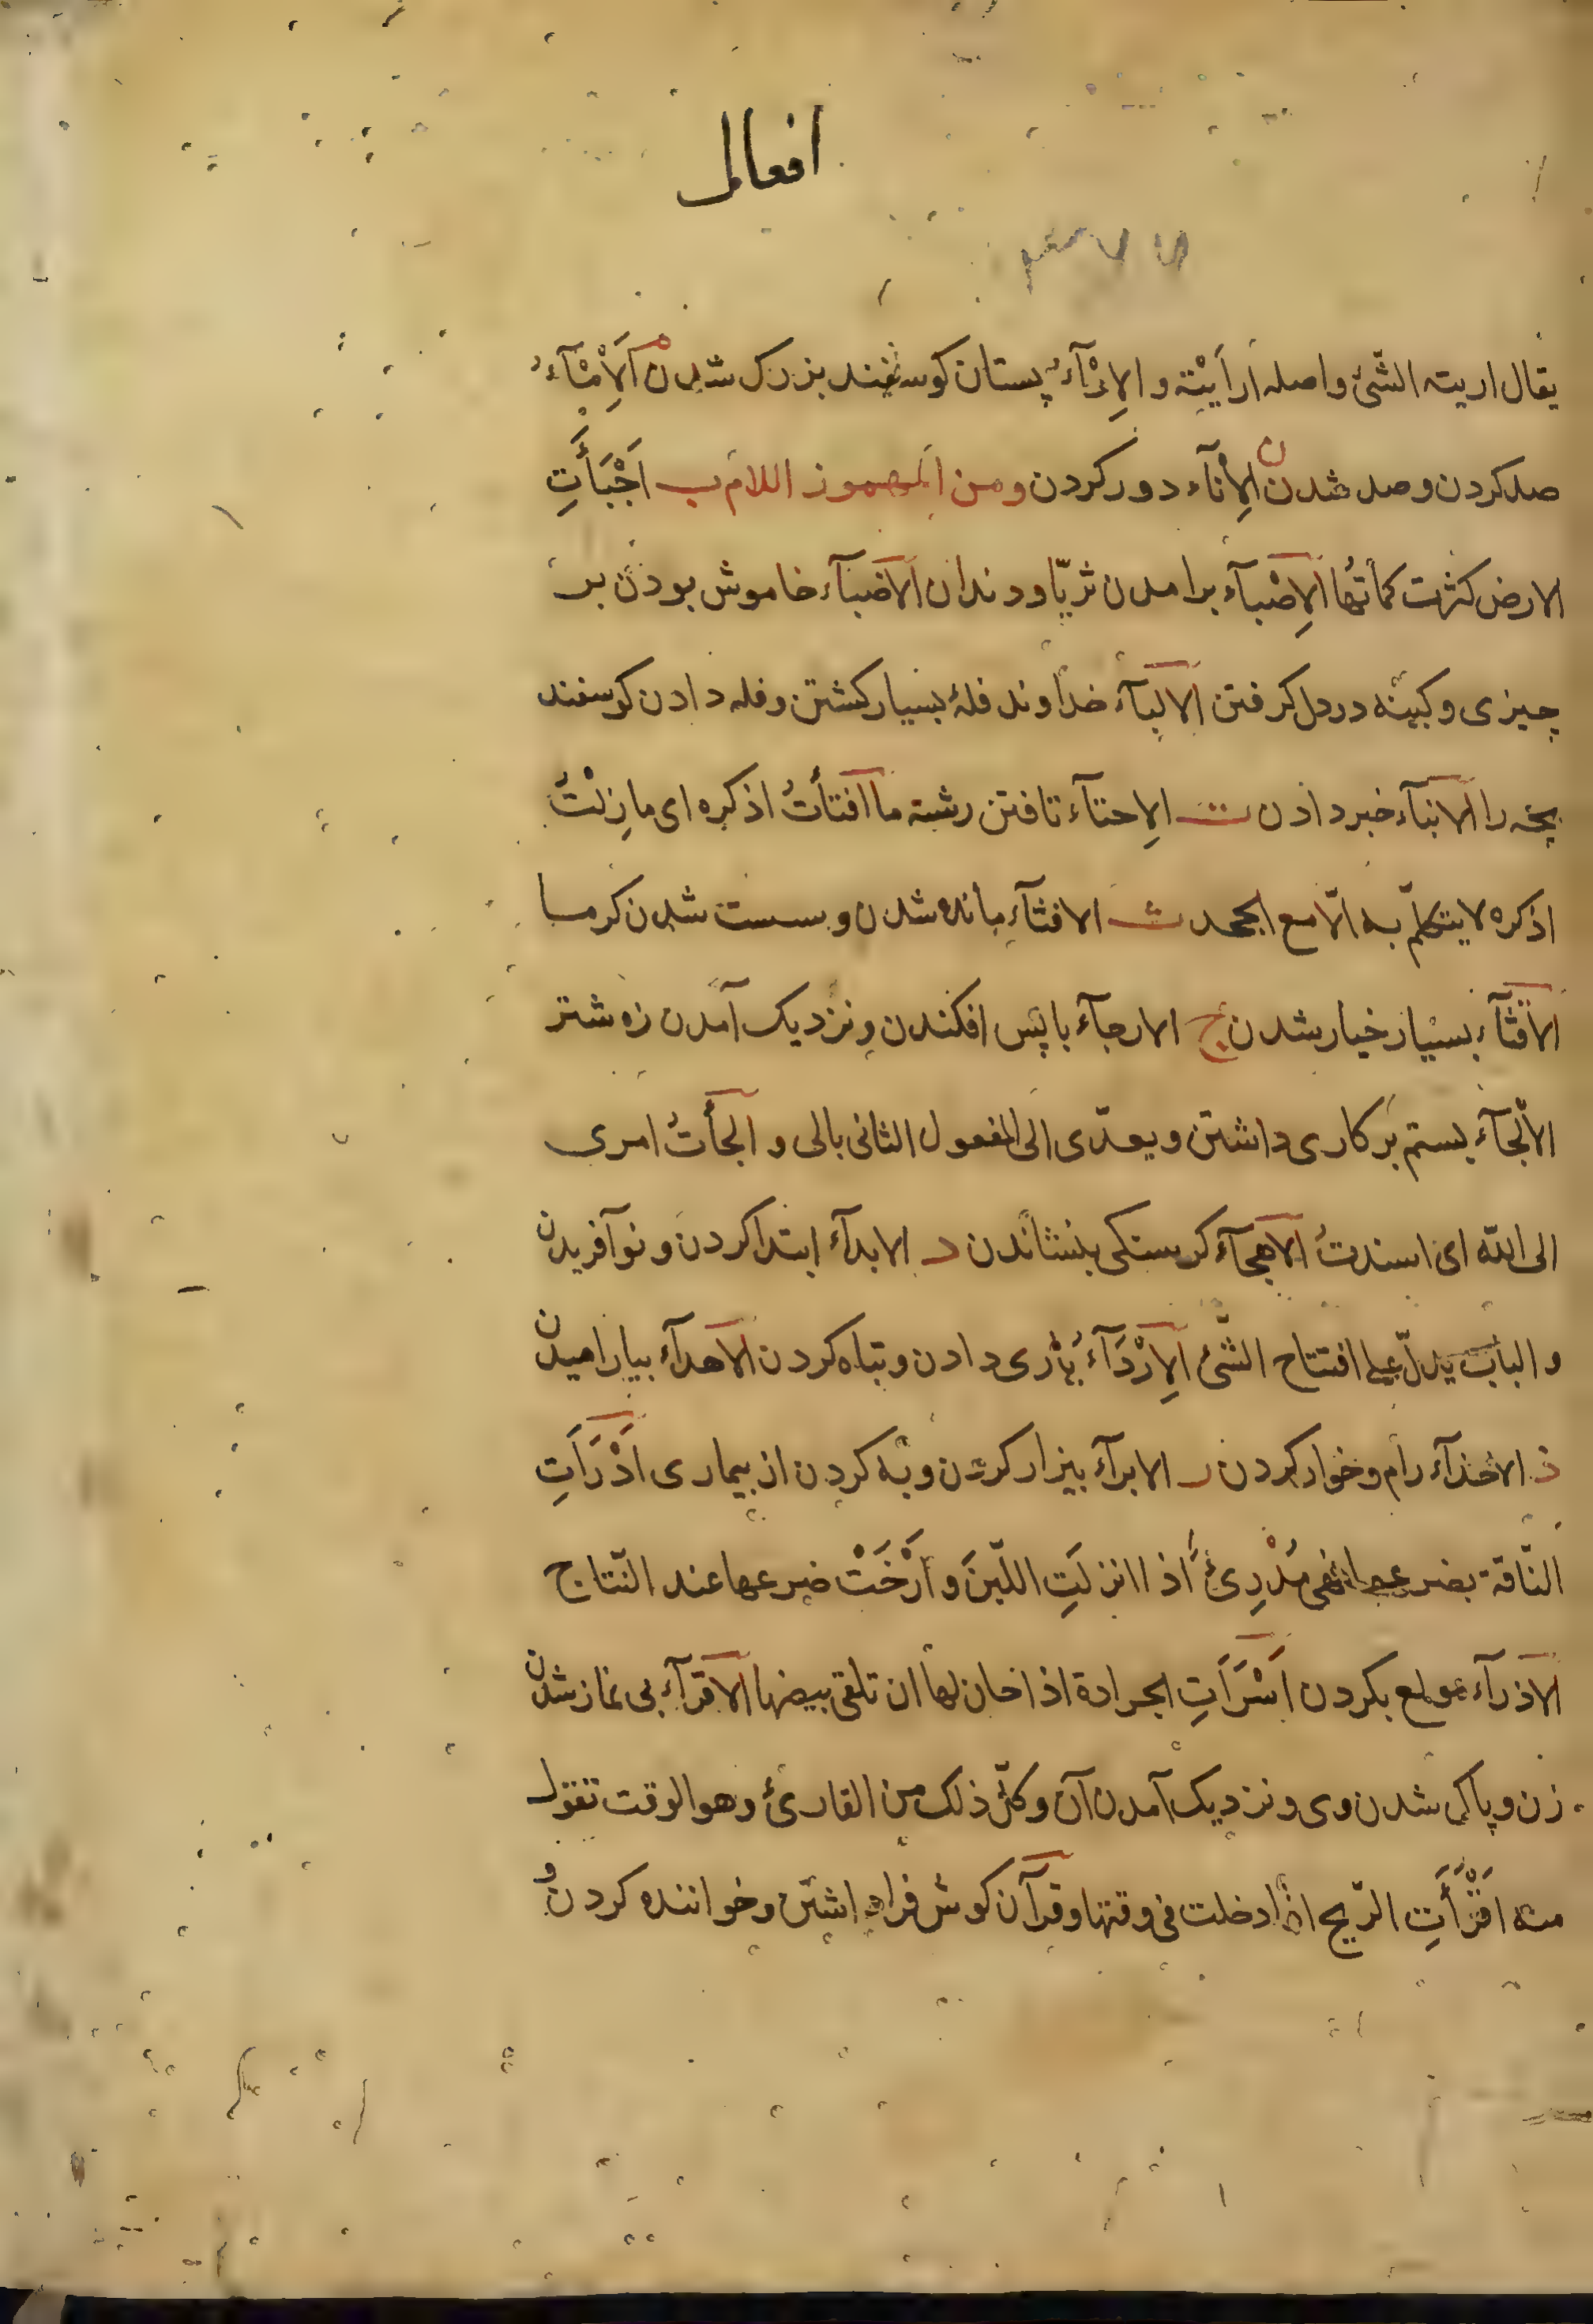 افعال
یقال اریته الشّئ واصله ارأیْتُه والاِرْآءُ پستان کوسفند بزرک شدن م اَلاِمْآءُ
صد کردن وصد شدن ن الاِنْآء دور کردن ومن المهموز اللام ب اَجْبَأَتِ
الارض کثرت کمأتُها الاِصْبآء برامدن ثریّا ودندان الاضبآء خاموش بودن بر
چیزی وکینه دردل کرفتن الالبآء خداوند فلۀ بسیار کشتن وفله دادن کوسفند
بچه را الانبآء خبر دادن ت الاِحتآء تافتن رشته ما افتأتُ اذکره ای مازِلْتُ
اذکره لایتکلّم به الّا مع الجحد ث الافثآء مانده شدن وسست شدن کرما
الاقثآء بسیار خیار شدن ج الارجآء باپس افکندن ونزدیک آمدن زه شتر
الالْجآء بستم بر کاری داشتن ویعدّی الی المفعول الثانی بالی والجأتُ امری
الی اللّه ای اسندتُ الاهجآء کرسنکی بنشاندن د الابدآء ابتدا کردن ونو آفریدن
والباب یدلّ علی افتتاح الشّئ اَلاِرْدَآءُ یاری دادن وتباه کردن الاهدآء بیارامیدن
ذ الاخذآء رام وخوار کردن ر الابرآء بیزار کردن وبه کردن از بیماری اَدْرَأَتِ
النّاقة بضرعها فهی مُدْرِئٌ اذا انزلَتِ اللّبنَ واَرْخَتْ ضرعها عند النّتاج
الاذرآء مولع بکردن اَسْرَأَتِ الجرادة اذا حان لها ان تلقی بیضها الاقرآء بی نماز شدن
زن وپاک شدن وی ونزدیک آمدن آن وکلّ ذلک من القارئ وهو الوقت تقول
منه اَقْرَأَتِ الرّیح اذا دخلت فی وقتها وقرآن کوش فرا داشتن وخواننده کردن و